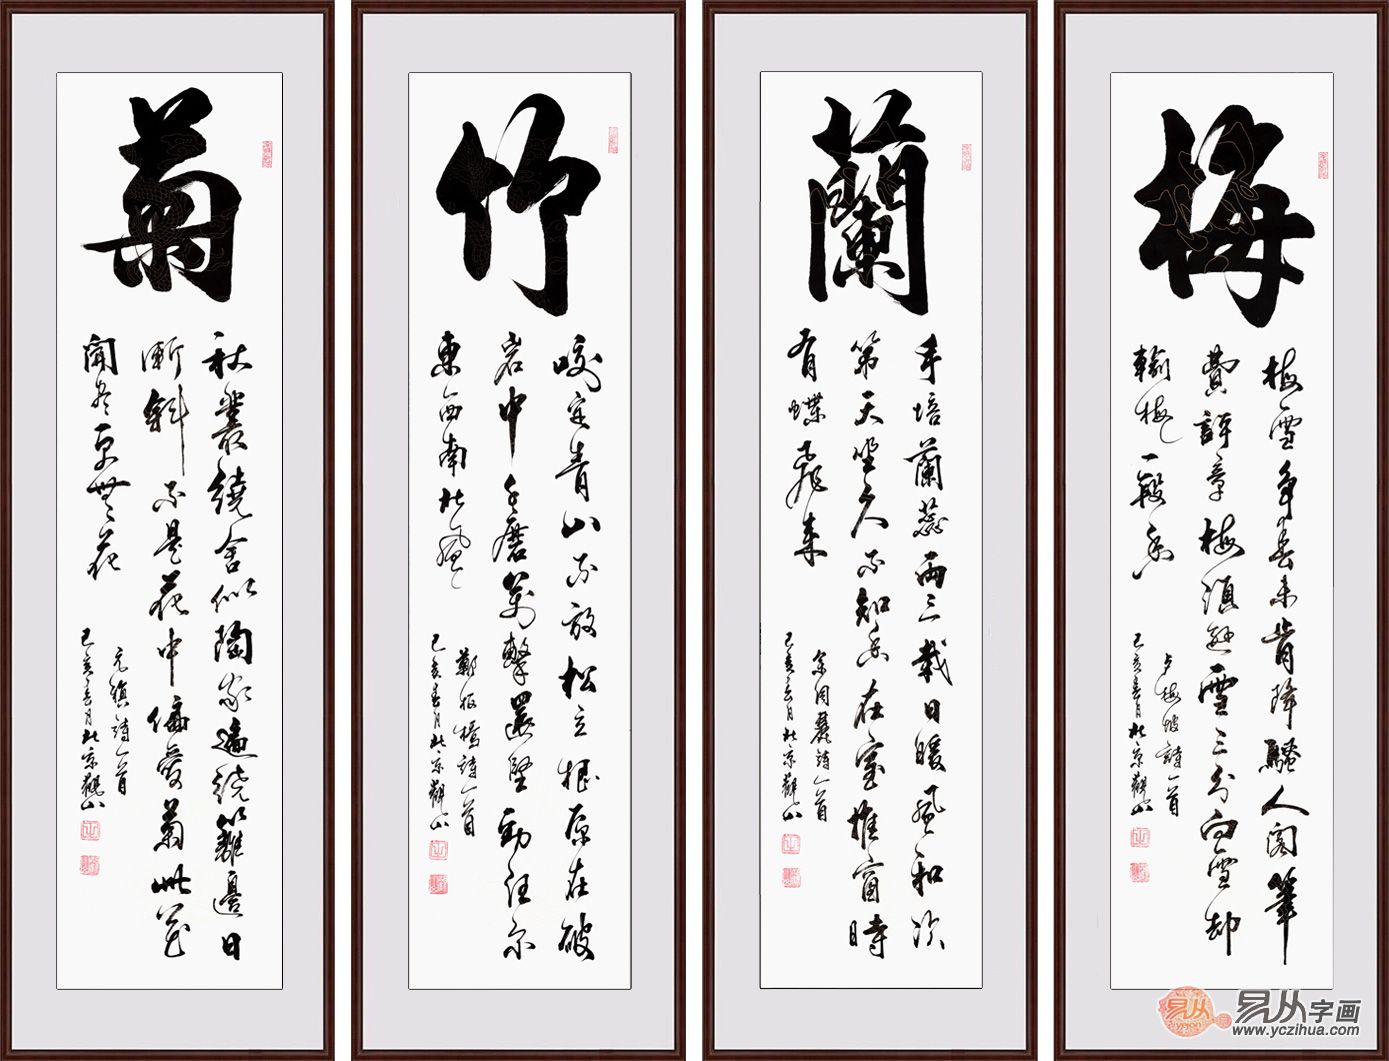 梅
梅雪爭春未肯降騷人閣筆
費評章梅須遜雪三分白雪却
輸梅一段香
卢梅坡詩一首
己亥春月北京觀山
蘭
手培蘭蕊兩三載日暖風和次
第天坐久不知香在室推窗時
有蝶飛來
余同麓詩一首
己亥春月北京觀山
竹
咬定青山不放松立根原在破
岩中千磨萬擊還堅勁任尔
東西南北風
鄭板橋詩一首
己亥春月北京觀山
菊
秋叢繞舍似陶家遍繞籬邊日
漸斜不是花中偏愛菊此花
開盡更無花
元稹詩一首
己亥春月北京觀山
易从
yicjon
易从字画
www.yczihua.com